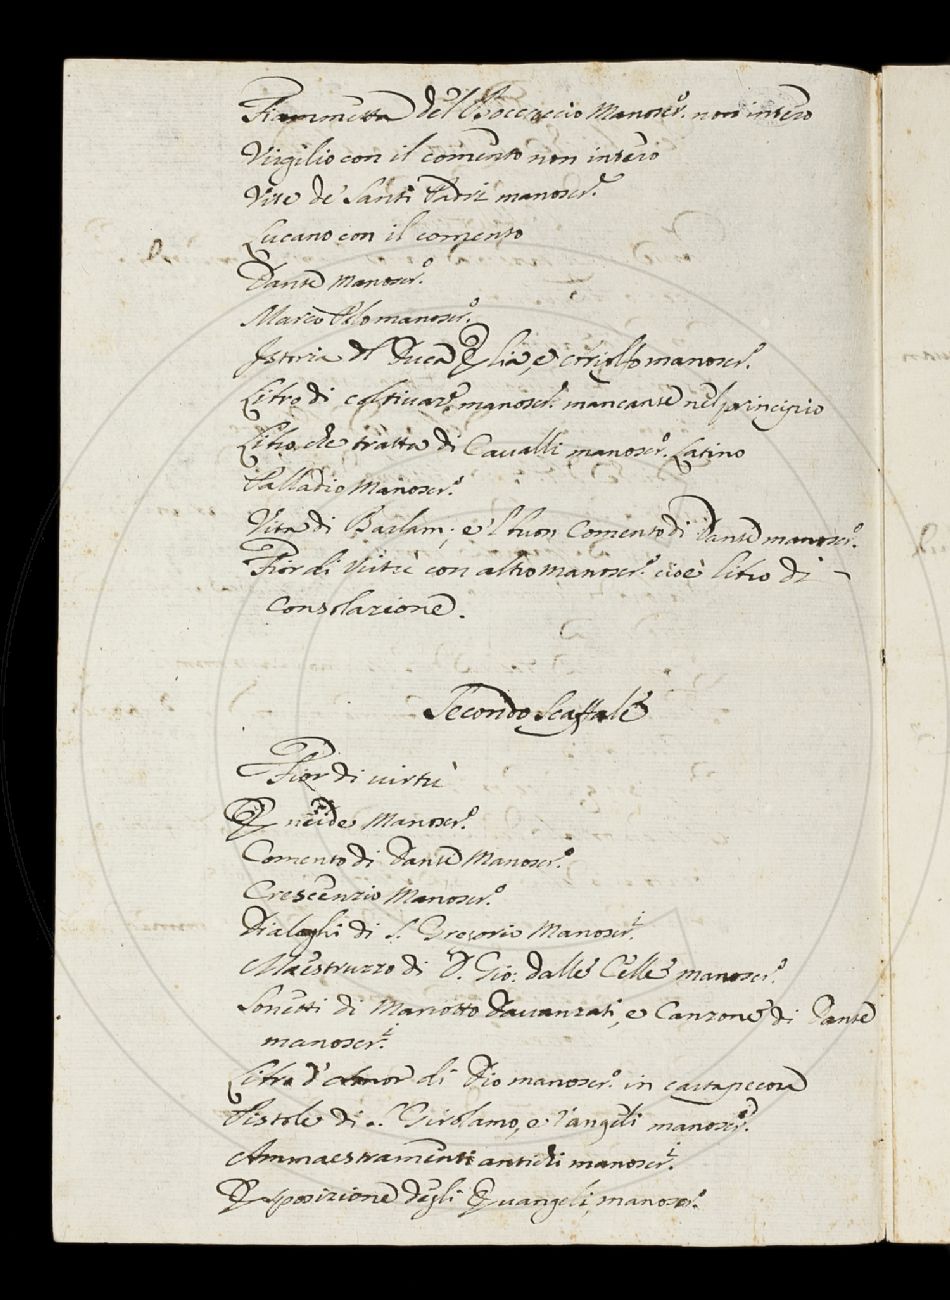 Fiammetta del Boccaccio Manoscr.º non intero
Virgilio con il comento non intero
Vite de' Santi Padri manoscr.º
Lucano con il comento
Dante Manoscr.º
Marco Polo manoscr.º
Istoria d' Duca Elia, e manoscr.º
Libro di coltivare, manoscr.º mancante nel principio
Libro che tratta di Cavalli manoscr.º Latino
Palladio Manoscr.º
Vita di Barlam; e buon Comento di Dante manoscr.º
Fior di Virtù con altro manoscr.º cioè libro di
Consolazione.
Secondo Scaffale
Fior di virtù
Eneide Manoscr.º
Comento di Dante Manoscr.º
Crescenzio Manoscr.º
Dialoghi di S. Gregorio Manoscr.i
Maestruzzo di D. Gio: dalle Celle manoscr.º
Sonetti di Mariotto Davanzati, e Canzone di Dante
manoscr.i
Libro d'Amor di Dio manoscr.º in cartapecora
Pistole di S. Girolamo, e Vangeli manoscr.º
Ammaestramenti antichi manoscr.i
Esposizione degli Evangeli, manoscr.º